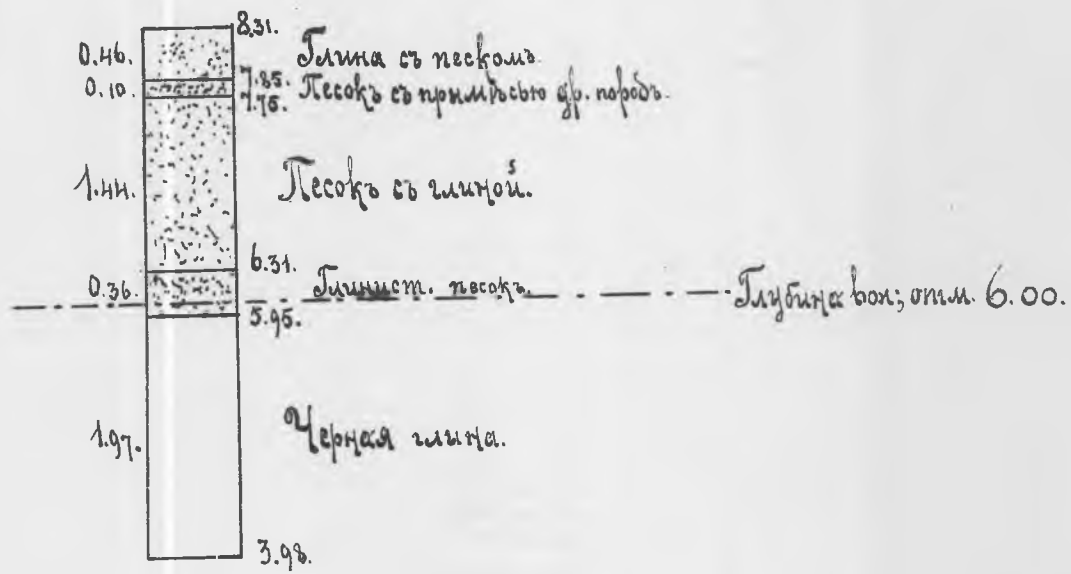 8.31.
0.46. Глина съ пескомъ.
7.85.
0.10. Песокъ съ примѣсью др. породъ.
7.75.
1.44. Песокъ съ глиной.
6.31.
0.36. Глинист. песокъ.
Глубина вок; отм. 6.00.
5.95.
1.97. Черная глина.
3.98.